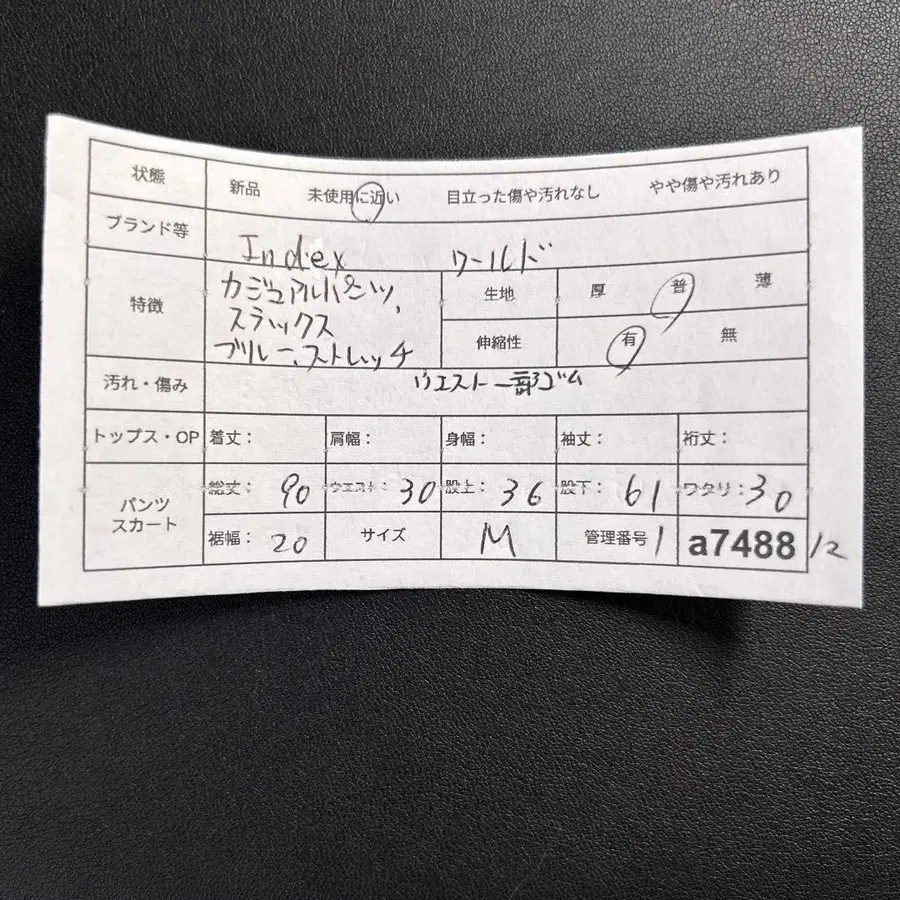 状態 新品 未使用に近い 目立った傷や汚れなし やや傷や汚れあり
ブランド等 Index ワールド
特徴 カジュアルパンツ、
スラックス
ブルー、ストレッチ
生地 厚 普 薄
伸縮性 有 無
汚れ・傷み ウエスト一部ゴム
トップス・OP 着丈: 肩幅: 身幅: 袖丈: 裄丈:
パンツ
スカート
総丈: 90 ウエスト: 30 股上: 36 股下: 61 ワタリ: 30
裾幅: 20 サイズ M 管理番号 1 a7488 12